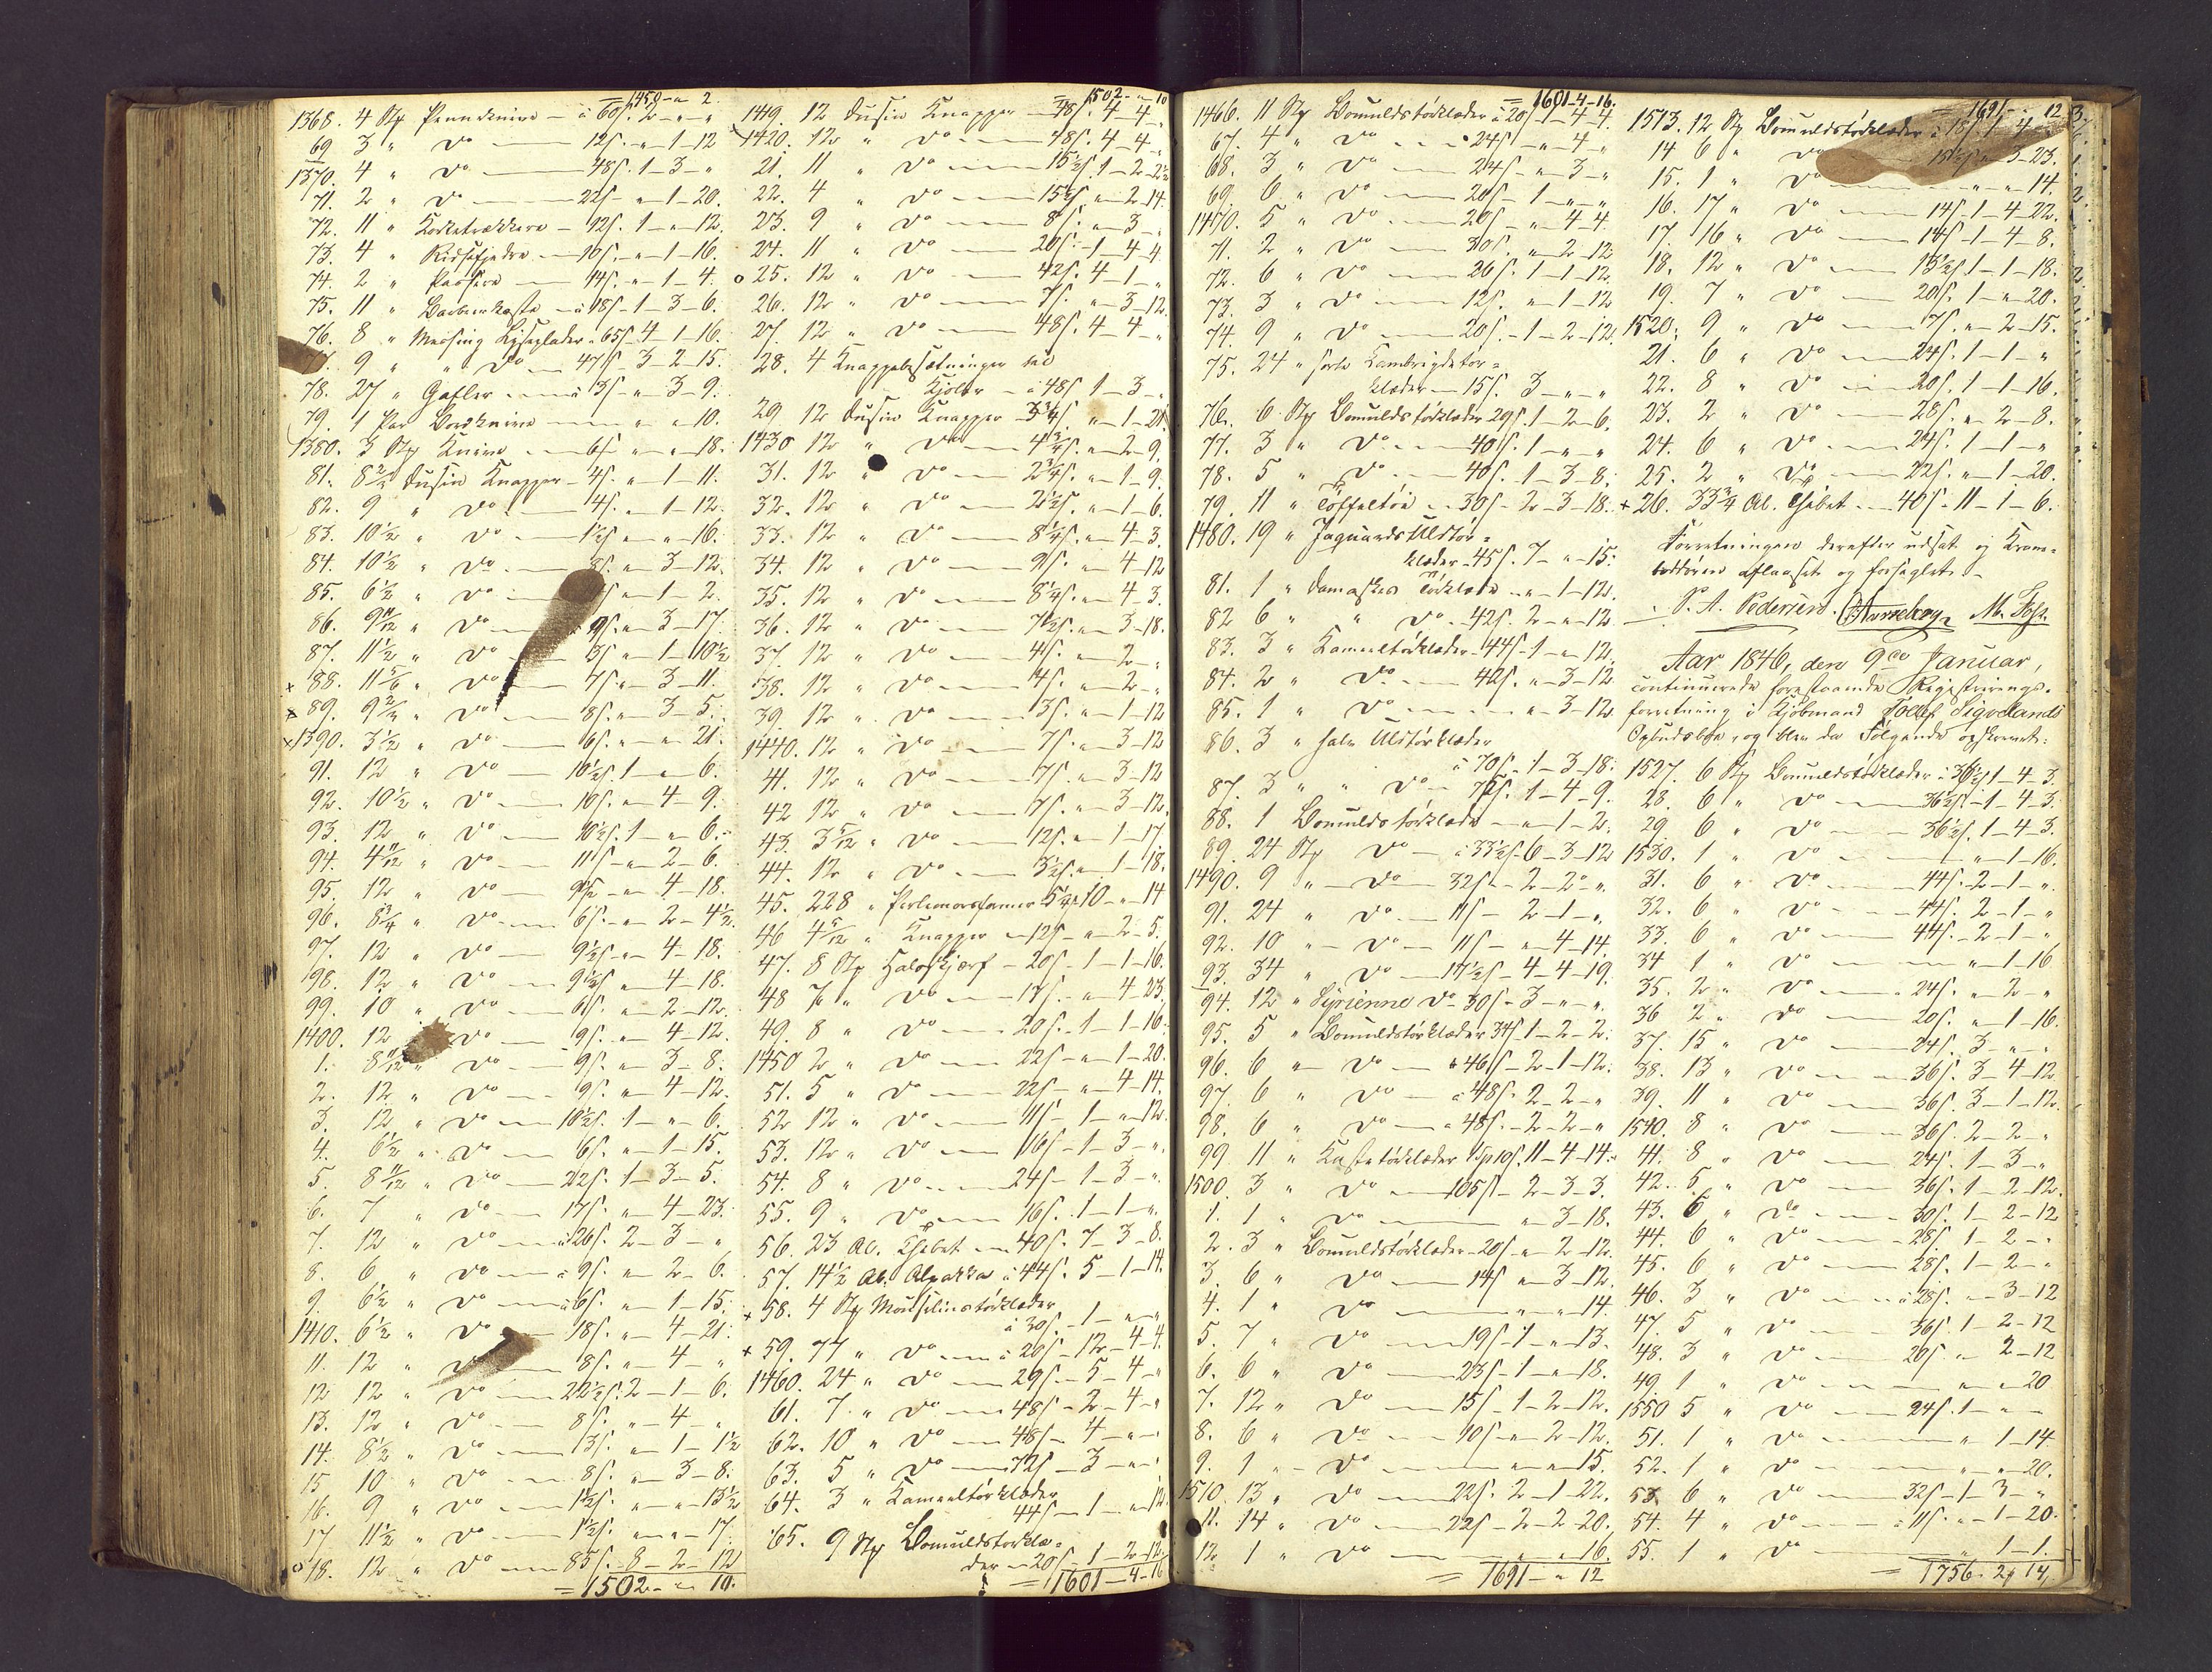 = 1450 - " - 2.
1368. 4 Stp Pennknive — à 60 s. 2 - " - "
69 3 " Do — 12 s. " - 1 - 12
1370. 4 " Do — 48 s. 1 - 3 - "
71. 2 " Do — 22 s. - " - 1 - 20.
72. 11 " Korketrækkere — 12 s. 1 - " - 12.
73. 4 " — 10 s. " - 1 - 16.
74. 2 " Passere — 14 s. " - 1 - 4.
75. 11 " — à 18 s. 1 - 3 - 6.
76. 8 " Messing Lyseplader à 65 s. 4 - 1 - 16.
77. 9 " " Do — 47 s. 3 - 2 - 15.
78. 27 " Gafler — à 3 s. " - 3 - 9.
79. 1 Par Bordknive — " - " - 10.
1380. 3 Stp Knive — 6 s. " - " - 18.
81. 8 Dusin Knapper — 4 s. " - 1 - 11.
82. 9 " Do — 4 s. " - 1 - 12.
83. 10½ " Do — 1½ s. " - " - 16.
84. 10½ " Do — 8 s. " - 3 - 12.
85. 6½ " Do — " - 1 - 2.
86. 9 11/12 " Do — 9 s. " - 3 - 17.
87. 11½ " Do — 3 s. " - 1 - 10½
+ 88. 11 5/6 " Do — 7 s. " - 3 - 11.
+ 89. 9 " Do — 8 s. " - 3 - 5.
+ 1390. 3½ " Do — 6 s. " - " - 21.
91. 12 " Do — 10½ s. 1 - " - 6.
92. 10½ " Do — 10 s. " - 4 - 9.
93. 12 " Do — 10½ s. 1 - " - 6.
94. 4 11/12 " Do — 11 s. " - 2 - 6.
95. 12 " Do — 9½ " - 4 - 18.
96. 8¾ " Do — 6 s. " - 2 - 4½.
97. 12 " Do — 9½ s. " - 4 - 18.
98. 12 " Do — 9½ s. " - 4 - 18.
99. 10 " Do — 6 s. " - 2 - 12.
1400. 12 " Do — 9 s. " - 4 - 12.
1. 8 11/12 " Do — 9 s. " - 3 - 8.
2. 12 " Do — 9 s. " - 4 - 12.
3. 12 " Do — 10½ s. 1 - " - 6.
4. 6½ " Do — 6 s. " - 1 - 15.
5. 8 11/12 " Do — 22 s. 1 - 3 - 5.
6. 7 " Do — 17 s. " - 4 - 23.
7. 12 " Do — à 26 s. 2 - 3 - "
8. 6 " Do — à 9 s. " - 2 - 6.
9. 6½ " Do — à 6 s. " - 1 - 15.
1410. 6½ " Do — 18 s. " - 4 - 21.
11. 12 " Do — 8 s. " - 4 - "
12 12 " Do — 22½ s. 2 - 1 - 6.
13. 12 " Do — 8 s. " - 4 - "
14. 8½ " Do — 3 s. " - 1 - 1½
15 10 " Do — 8 s. " - 3 - 8.
16. 9 " Do — 1½ s. " - " - 13½
17 11½ " Do — 1½ s. " - " - 17.
o 18. 12 " Do — 85 s. - 8 - 2 - 12
= 1502 - " - 10.
= 1502 - " - 10
1419. 12 Dusin Knapper — 48 s. 4 - 4 - "
1420. 12 " Do — 48 s. 4 - 4 - "
21. 11 " Do — 15½ s. 1 - 2 - 2½
22. 4 " Do — 15½ s. " - 2 - 14.
23. 9 " Do — 8 s. " - 3 - "
24. 11 " Do — 20 s. - 1 - 4 - 4
o 25. 12 " Do — 42 s. 4 - 1 - "
26. 12 " Do — 7 s. " - 3 - 12.
27. 12 " Do — 48 s. 4 - 4 - "
28. 4 Knappebesætninger til
Kjoler — à 48 s. 1 - 3 - "
29 12 Dusin Knapper — 3¾ s. " - 1 - 21.
1430 12 " Do — 4¾ s. " - 2 - 9.
31. 12 " Do — 2¾ s. " - 1 - 9.
32. 12 " Do — 2½ s. " - 1 - 6.
33. 12 " Do — 8¼ s. " - 4 - 3.
34. 12 " Do — 9 s. " - 4 - 12
35. 12 " Do — 8¼ s. " - 4 - 3.
36. 12 " Do — 7½ s. " - 3 - 18.
37. 12 " Do — 4 s. " - 2 - "
38. 12 " Do — 4 s. " - 2 - "
39. 12 " Do — 3 s. " - 1 - 12
1440. 12 " Do — 7 s. " - 3 - 12
41. 12 " Do — 7 s. " - 3 - 12
42 12 " Do — 7 s. " - 3 - 12.
43. 3 5/12 " Do — 12 s. " - 1 - 17
44. 12 " Do — 3½ s. " - 1 - 18.
45. 228 " — 5¼ s. 10 - " - 14
46 4 5/12 " Knapper — 12 s. " - 2 - 5.
47. 8 Stp Halsskjerf — 20 s. 1 - 1 - 16.
48 7 " Do — 17 s. " - 4 - 23.
49. 8 " Do — 20 s. 1 - 1 - 16.
1450 2 " Do — 22 s. " - 1 - 20.
51. 5 " Do — 22 s. " - 4 - 14.
52 12 " Do — 11 s. - 1 - " - 12.
53. 12 " Do — 16 s. - 1 - 3 - "
54. 8 " Do — 24 s. - 1 - 3 - "
55. 9 " Do — 16 s. - 1 - 1 - "
56. 23 Al. Thibet — 40 s. 7 - 3 - 8.
57. 14½ Al. Alpakka à 44 s. 5 - 1 - 14.
+ 58. 4 Stp Mousselinstørklæder
à 30 s. - 1 - " - "
+ 59. 77 " Do — à 20 s. - 12 - 4 - 4.
1460. 24 " Do — 29 s. - 5 - 4 - "
61. 7 " Do — 48 s. - 2 - 4 - "
62. 10 " Do — 48 s. - 4 - " - "
63. 5 " Do — 72 s. - 3 - " - "
64. 3 " Kameeltørklæder
44 s. - 1 - " - 12.
65. 9 Stp Bomuldstørklæ-
der — 20 s. - 1 - 2 - 12.
= 1601 - 4 - 16
= 1601 - 4 - 16.
1466. 11 Stp Bomuldstørklæder à 20 s. 1 - 4 - 4.
67. 4 " Do — 24 s. " - 4 - "
68. 3 " Do — 24 s. " - 3 - "
69. 6 " Do — 20 s. 1 - " - "
1470. 5 " Do — 20 s. " - 4 - 4.
71. 2 " Do — 30 s. " - 2 - 12
72. 6 " Do — 26 s. 1 - 1 - 12
73. 3 " Do — 12 s. " - 1 - 12
74. 9 " Do — 20 s. - 1 - 2 - 12.
75. 24 " sorte Cambrigdetør-
klæder — 15 s. 3 - " - "
76. 6 Stp Bomuldstørklæder 29 s. 1 - 2 - 6.
77. 3 " Do — 40 s. 1 - " - "
78. 5 " Do — 40 s. 1 - 3 - 8.
79. 11 " Töffeltöi — 30 s. - 2 - 3 - 18.
1480. 19 " Jaquards Uldtør-
klæder — 45 s. 7 - " - 15.
81. 1 " Damaskes Tørklæde — " - 1 - 12.
82 6 " " Do — 42 s. 2 - " - 12
83. 3 " Kameeltørklæder — 44 s. - 1 - " - 12.
84. 2 " Do — 42 s. " - 3 - 12
85. 1 " Do — " - 3 - 12.
86. 3 " halv Uldtørklæder
à 70 s. - 1 - 3 - 18.
87. 3 " " Do — 75 s. 1 - 4 - 9.
88. 1 Bomuldstørklæde — " - 1 - 2.
89. 24 Stp Do — à 33½ s. 6 - 3 - 12
1490. 9 " — Do — 32 s. - 2 - 2 - "
91. 24 " Do — 11 s. - 2 - 1 - "
92. 10 " — Do — 11 s. - " - 4 - 14.
93. 34 " Do — 17½ s. - 4 - 4 - 19.
94. 12 " Syrienne Do 30 s. - 3 - " - "
95. 5 " Bomuldstørklæder 34 s. 1 - 2 - 2.
96. 6 " Do — à 46 s. - 2 - 1 - 12.
97. 6 " Do — à 48 s. 2 - 2 - "
98. 6 " Do — à 48 s. - 2 - 2 - "
99 11 " Kastetørklæder 1 Sp 10 s. 11 - 4 - 14.
1500. 3 " Do — 105 s. - 2 - 3 - 3.
1. 1 " Do — " - 3 - 18.
2. 3 " Bomuldstørklæder — 20 s. " - 2 - 12.
3. 6 " Do — 14 s. " - 3 - 12.
4. 1 " Do — " - " - 14.
5. 7 " Do — 19 s. 1 - " - 13.
6. 6 " Do — 23 s. 1 - " - 18.
7. 12 " Do — 15 s. - 1 - 2 - 12.
8. 6 " Do — 10 s. " - 2 - 12.
9. 1 " — Do — " - " - 15.
1510. 13 " Do — 22 s. 2 - 1 - 22.
11. 14 " Do — 22 s. - 2 - 2 - 20.
12. 1 " Do — " - " - 16.
= 1691 - " - 12
= 1691 - " - 12.
1513. 12 Stp Bomuldstørklæder à 18 s. 1 - 4 - "
14 6 " Do — 15½ s. " - 3 - 23.
15. 1 " Do — " - " - 14.
16. 17 " Do — 14 s. - 1 - 4 - 22.
17. 16 " Do — 14 s. - 1 - 4 - 8.
18. 12 " Do — 13½ s. 1 - 1 - 18.
19. 7 " Do — 20 s. 1 - " - 20.
1520. 9 " Do — 7 s. " - 2 - 15.
21. 6 " Do — 24 s. 1 - 1 - "
22. 8 " Do — 20 s. 1 - 1 - 16.
23. 2 " Do — 28 s. " - 2 - 8.
24. 6 " Do — 24 s. 1 - 1 - "
25. 2 " Do — 22 s. " - 1 - 20.
+ 26. 33¾ Al. Thibet — 40 s. - 11 - 1 - 6.
Forretningen derefter udsat og Kram-
boddøren aflaaset og forseglet. —
P. A. Pedersen. M.
Aar 1846, den 9de Januar,
continuerede forestaaende Registrerings-
forretning i Kjøbmand Tollef Sigvelands
Opbudsboe, og blev da Følgende opskrevet:
1527. 6 Stp Bomuldstørklæder à 36½ s. 1 - 4 - 3.
28. 6 " Do — 36½ s. - 1 - 4 - 3.
29 6 " Do — 36½ s. 1 - 4 - 3.
1530. 1 " Do — " - 1 - 16.
31. 6 " Do — 44 s. - 2 - 1 - "
32. 6 " Do — 44 s. 2 - 1 - "
33. 6 " Do — 44 s. - 2 - 1 - "
34 1 " Do — " - 1 - 16
35. 2 " Do — 24 s. " - 2 - "
36 2 " Do — 20 s. " - 1 - 16.
37. 15 " Do — 24 s. 3 - " - "
38. 13 " Do — 36 s. 3 - 4 - 12.
39. 11 " Do — 36 s. 3 - 1 - 12.
1540. 8 " Do — 36 s. 2 - 2 - "
41. 8 " Do — 24 s. 1 - 3 - "
42. 5 " Do — 36 s. 1 - 2 - 12.
43. 6 " Do — 30 s. 1 - 2 - 12
44. 6 " Do — 28 s. 1 - 2 - "
45. 6 " Do — 28 s. 1 - 2 - "
46. 3 " Do — à 28 s. " - 3 - 12
47. 5 " Do — 36 s. 1 - 2 - 12
48. 3 " Do — 20 s. " - 2 - 12
49. 1 " Do — " - " - 20
1550 5 " Do — 24 s. 1 - " - "
51. 1 " Do — " - 1 - 14
52. 1 " Do — " - " - 20.
53 6 " Do — 32 s. - 1 - 3 - "
54. 4 " Do — à 11 s. " - 1 - 20.
55. 1 " Do — " - 1 - 1.
= 1756 - 2 - 14